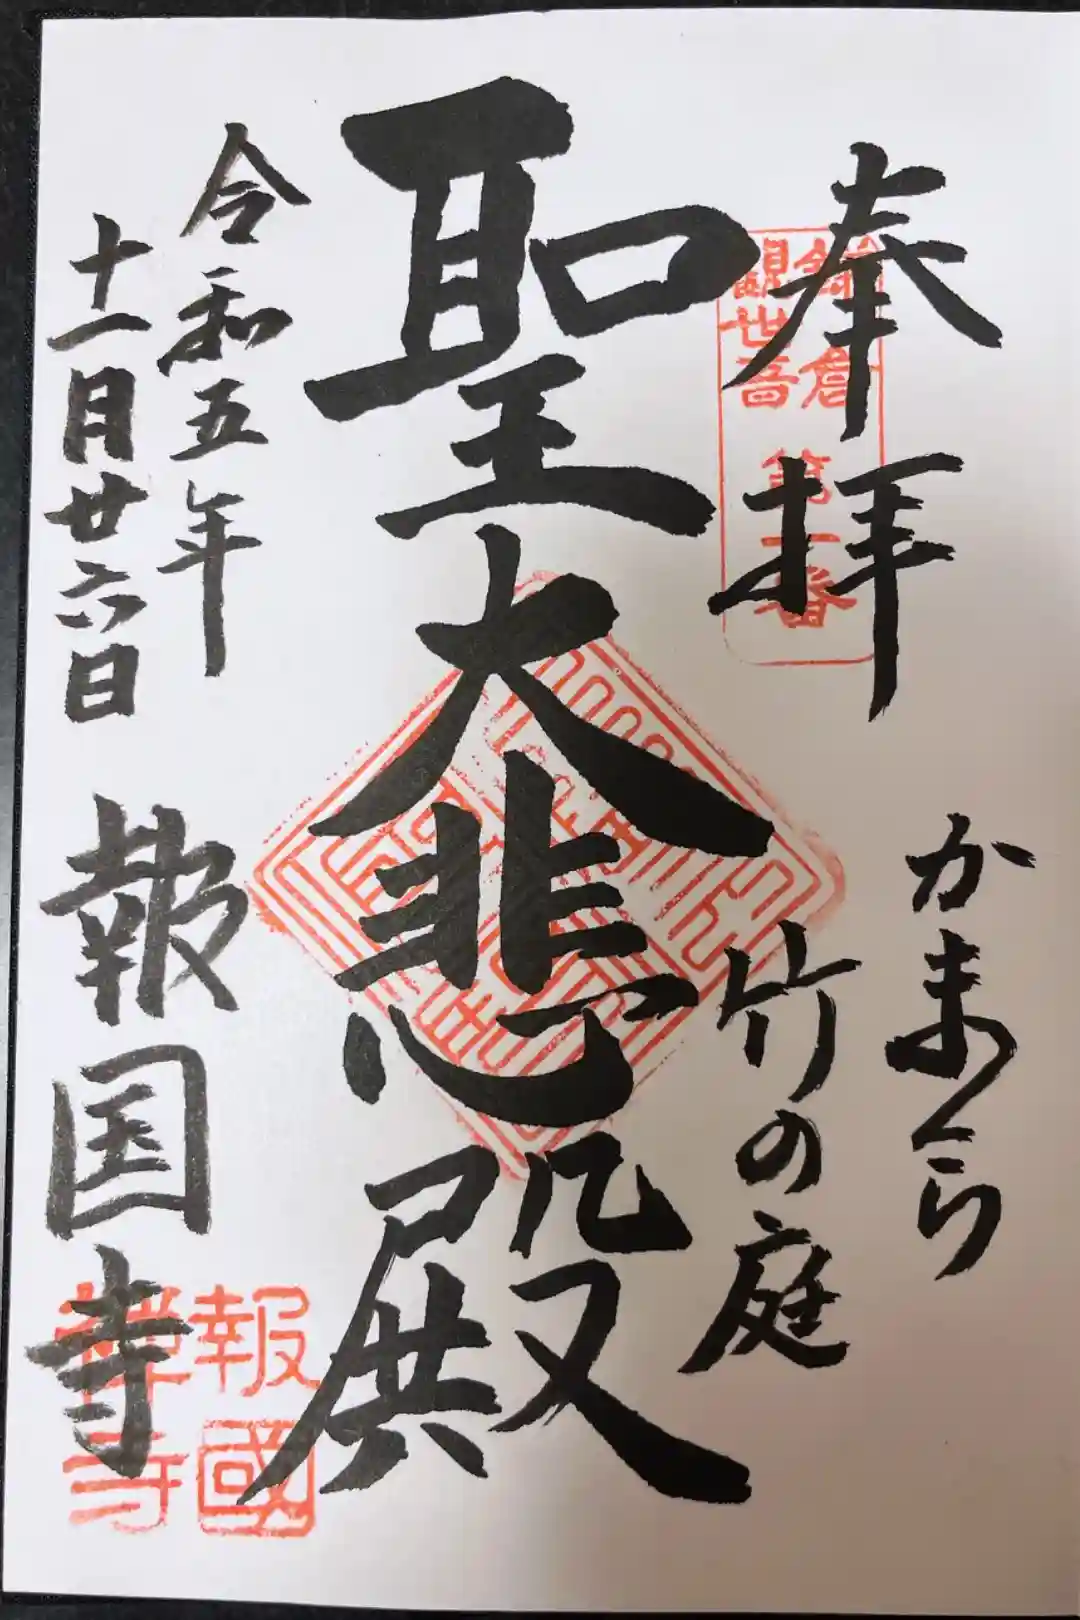 奉拝
かまくら
竹の庭
鎌倉
観世音
第十番
聖大悲殿
令和五年
十一月廿六日
報国寺
報國
禅寺